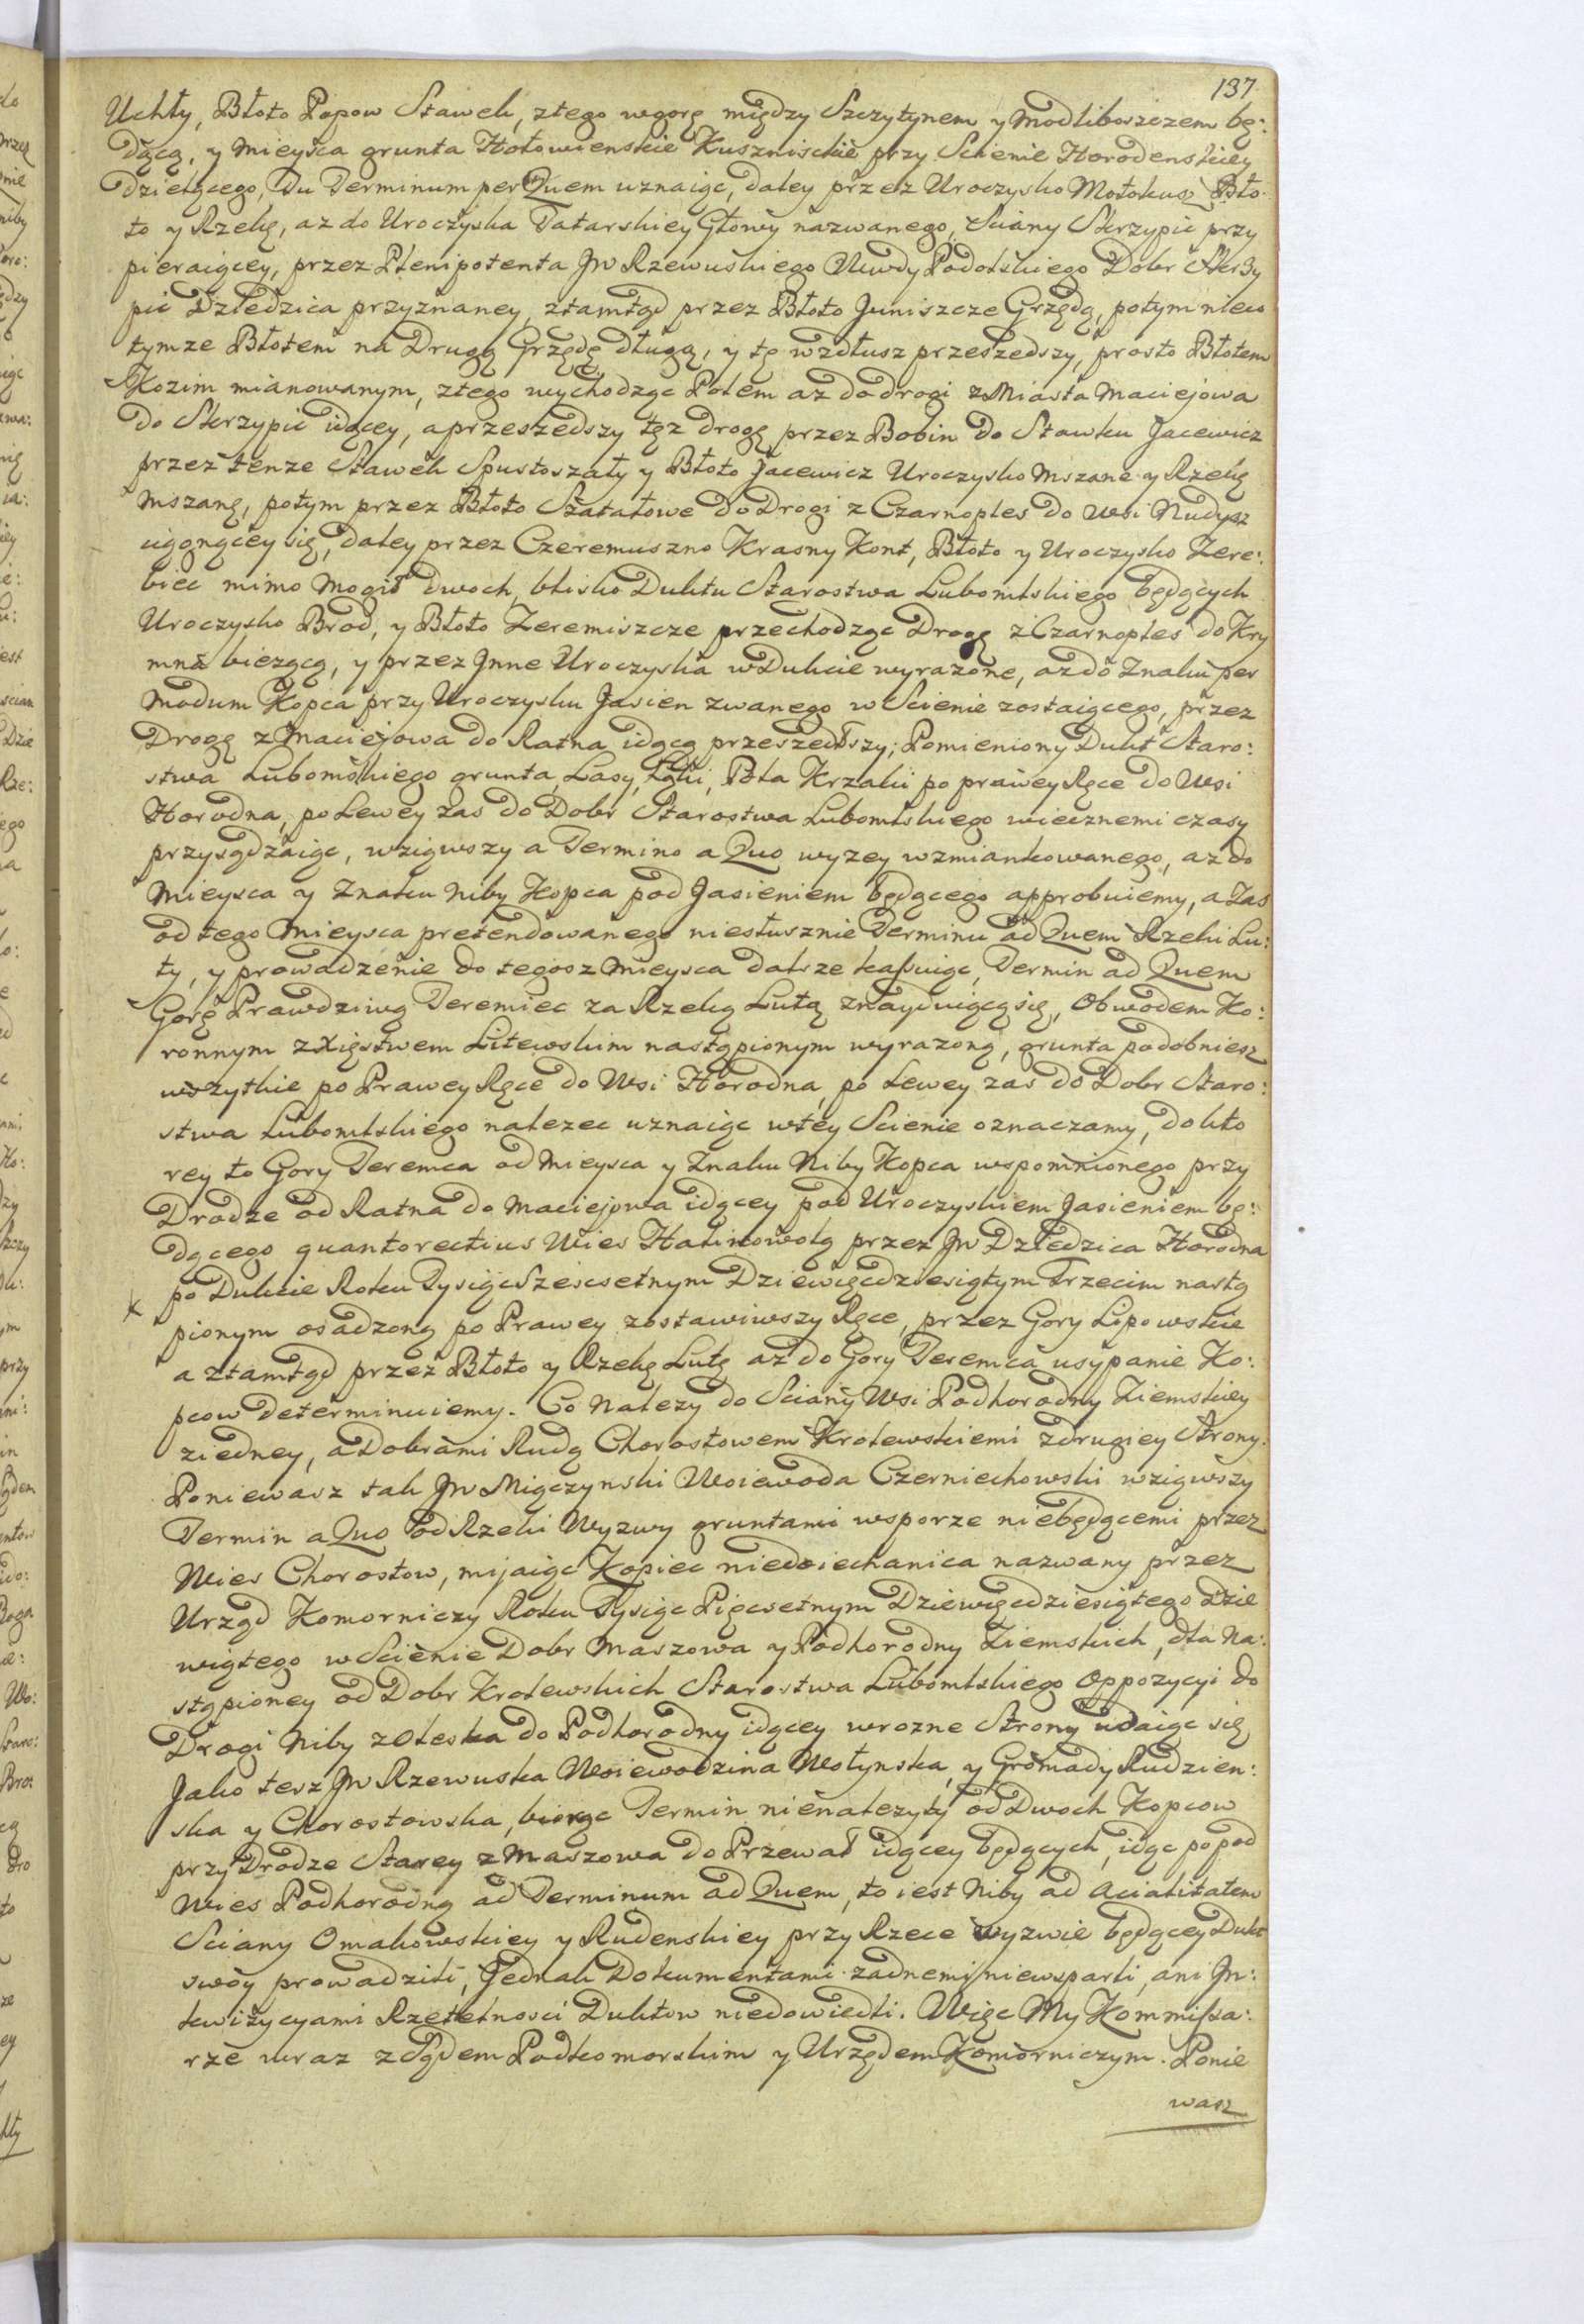 137
Uchły, Błoto Popow Stawek, ztego wgorę między Szczytynem y Modliboszczem bę:
dącą, y Mieysca grunta Hołowienskie Kusznisckie przy Scienie Horodenskiey
dzielącego, Du Terminum per Quem uznaiąc, daley przez Uroczysko Mołokusz Bło:
to y Rzekę, az do Uroczyska Tatarskiey Głowy nazwanego, Sciany Skrzypic przy
pieraiącey, przez Plenipotenta Jw Rzewuskiego Wwdy Podolskiego Dobr Skrzy
pic Dziedzica przyznaney, ztamtąd przez Błoto Juniszcze Grzędą, potym nieco
tymze Błotem na Drugą Grzędę długą, y tę wzdłusz przeszedszy, prosto Błotem
Kozim mianowanym, ztego wychodząc Polem az do drogi z Miasta Maciejowa
do Skrzypic idącey, a przeszedszy tęz drogę przez Bobin do Stawku Jacewicz
przez tenze Stawek Spustoszały y Błoto Jacewicz Uroczysko Mszane y Rzekę
Mszanę, potym przez Błoto Szatałowe do Drogi z Czarnoples do Wsi Nudysz
ciągnącey się, daley przez Czeremuszno Krasny Kont, Błoto y Uroczysko Zere:
biec mimo Mogił dwoch, blisko Duktu Starostwa Lubomlskiego będących
Uroczysko Brod, y Błoto Zeremiszcze przechodząc Drogę z Czarnoples do Kry
mna biezącą, y przez Jnne Uroczyska w Dukcie wyrazone, az do Znaku per
modum Kopca przy Uroczysku Jasien zwanego w Scienie zostaiącego, przez
Drogę z Maciejowa do Ratna idącą przeszedłszy; Pomieniony Dukt Staro:
stwa Lubomskiego grunta, Lasy, Łąki, Pola Krzaki po prawey Ręce do Wsi
Horodna, po Lewey zas do Dobr Starostwa Lubomlskiego wiecznemi czasy
przysądzaiąc, wziąwszy a Termino a Quo wyzey wzmiankowanego, az do
Mieysca y Znaku Niby Kopca pod Jasieniem będącego approbuiemy, a Zas
od tego Mieysca pretendowanego niesłusznie Terminu ad Quem Rzeki Lu:
ty, y prowadzenie do tegosz Mieysca dalsze kassuiąc, Termin ad Quem
Gorę Prawdziwą Teremiec za Rzeką Lutą znayduiącą się, Obwodem Ko:
ronnym z Xięstwem Litewskim nastąpionym wyrazoną, grunta podobniesz
wszytkie po Prawey Ręce do Wsi Horodna, po Lewey zas do Dobr Staro:
stwa Lubomlskiego nalezec uznaiąc w tey Scienie oznaczamy, do kto
rey to Gory Teremca od Mieysca y Znaku Niby Kopca wspomnionego przy
Drodze od Ratna do Maciejowa idącey pod Uroczyskiem Jasieniem bę:
dącego quanto rectius Wies Halinowolą przez Jw Dziedzica Horodna
po Dukcie Roku Tysiąc Szescsetnym Dziewięcdziesiątym Trzecim nastą
pionym osadzoną po Prawey zostawiwszy Ręce, przez Gory Lipowskie
a ztamtąd przez Błoto y Rzekę Lutę az do Gory Teremca usypanie Ko:
pcow determinuiemy. Co Nalezy do Sciany Wsi Podhorodny Ziemskiey
ziedney, a Dobrami Rudą Chorostowem Krolewskiemi zdrugiey Strony.
Poniewasz tak Jw Miączynski Woiewoda Czerniechowski wziąwszy
Termin a Quo od Rzeki Wyzwy gruntami wsporze niebędącemi przez
Wies Chorostow, mijaiąc Kopiec niedoiechanica nazwany przez
Urząd Komorniczy Roku Tysiąc Pięcsetnym Dziewięcdziesiątego Dzie
wiątego w Scienie Dobr Maszowa y Podhorodny Ziemskich, dla Na:
stąpioney od Dobr Krolewskich Starostwa Lubomlskiego Oppozycyi do
Drogi Niby z Oleska do Podhorodny idącey wrozne Strony udaiąc się,
Jako tesz Jw Rzewuska Woiewodzina Wołynska, y Gromady Rudzien:
ska y Chorostowska, biorąc Termin nienalezyty od Dwoch Kopcow
przy Drodze Starey z Maszowa do Przewał idącey będących, idąc popod
Wies Podhorodną ad Terminum ad Quem, to iest Niby ad Acialitatem
Sciany Omakowskiey y Rudenskiey przy Rzece Wyzwie będącey Dukt
swoy prowadzili, Jednak Dokumentami zadnemi niewsparli, ani Jn:
kwizycyami Rzetelnosci Duktow niedowiedli. Więc My Kommissa:
rze wraz z Sądem Podkomorskim y Urzędem Komorniczym. Ponie
wasz